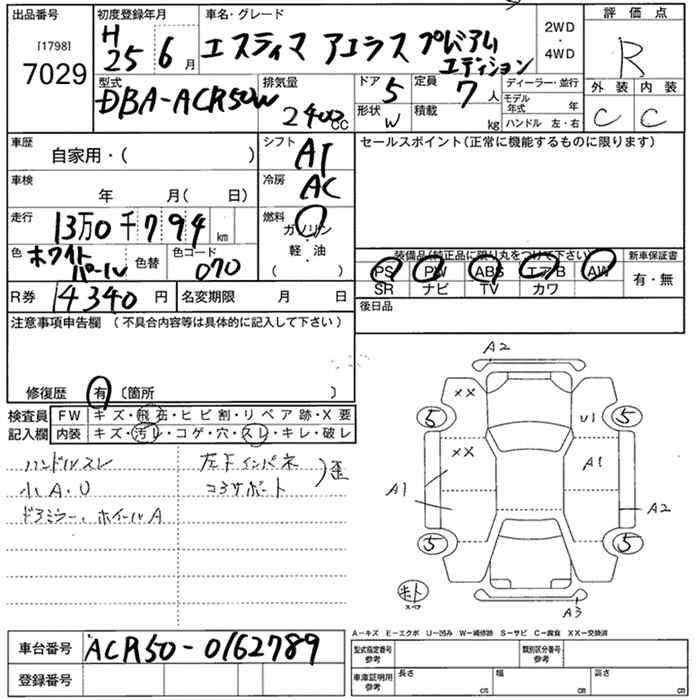 出品番号 初度登録年月 車名・グレード 2WD・4WD 評価点
[1798]
7029
H25 6月 エスティマ アエラス プレミアム
エディション
R
型式 排気量 ドア 5 定員 7人 ディーラー・並行 外装 内装
DBA-ACR50W 2400cc 形状 W 積載 kg モデル年式 年
ハンドル 左・右
C C
車歴 シフト セールスポイント(正常に機能するものに限ります)
自家用・( ) AT
車検 冷房
年 月( 日) AC
走行 燃料
13万0千794km ガソリン
軽・油
( )
色 色替 色コード
ホワイトパール 070
装備品(純正品に限り丸をつけて下さい) 新車保証書
PS PW ABS エアB AW 有・無
SR ナビ TV カワ
R券 14340円 名変期限 月 日 後日品
注意事項申告欄(不具合内容等は具体的に記入して下さい)
修復歴 有 〔箇所 〕
検査員 FW キズ・飛石・ヒビ割・リペア跡・X要
記入欄 内装 キズ・汚レ・コゲ・穴・スレ・キレ・破レ
ハンドルスレ 左下インパネ
小A.U コアサポート )歪
ドアミラー.ホイールA
A2
XX
5 5
U1
XX
A1
A1
A2
5 5
スペア
A3
A-キズ E-エクボ U-凹み W-補修跡 S-サビ C-腐食 XX-交換済
車台番号 ACR50-0162789
登録番号
型式指定番号 参考 類別区分番号 参考
車庫証明用 参考 長さ cm 幅 cm 高さ cm